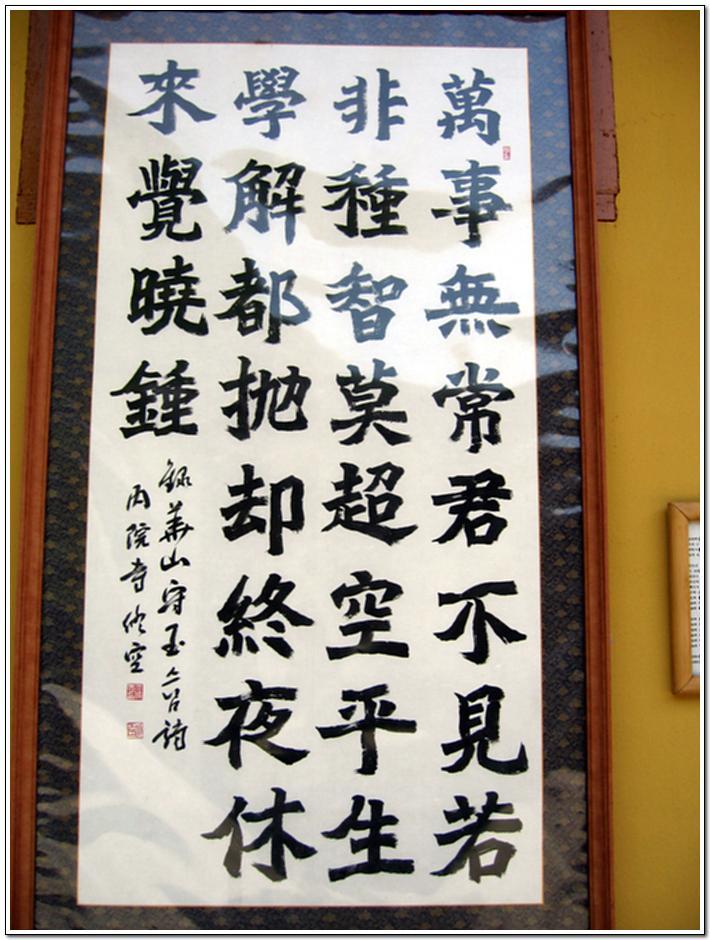 萬事無常君不見若
非種智莫超空平生
學解都抛却終夜休
來覺曉鍾
錄華山守玉스님詩
丙院寺修空